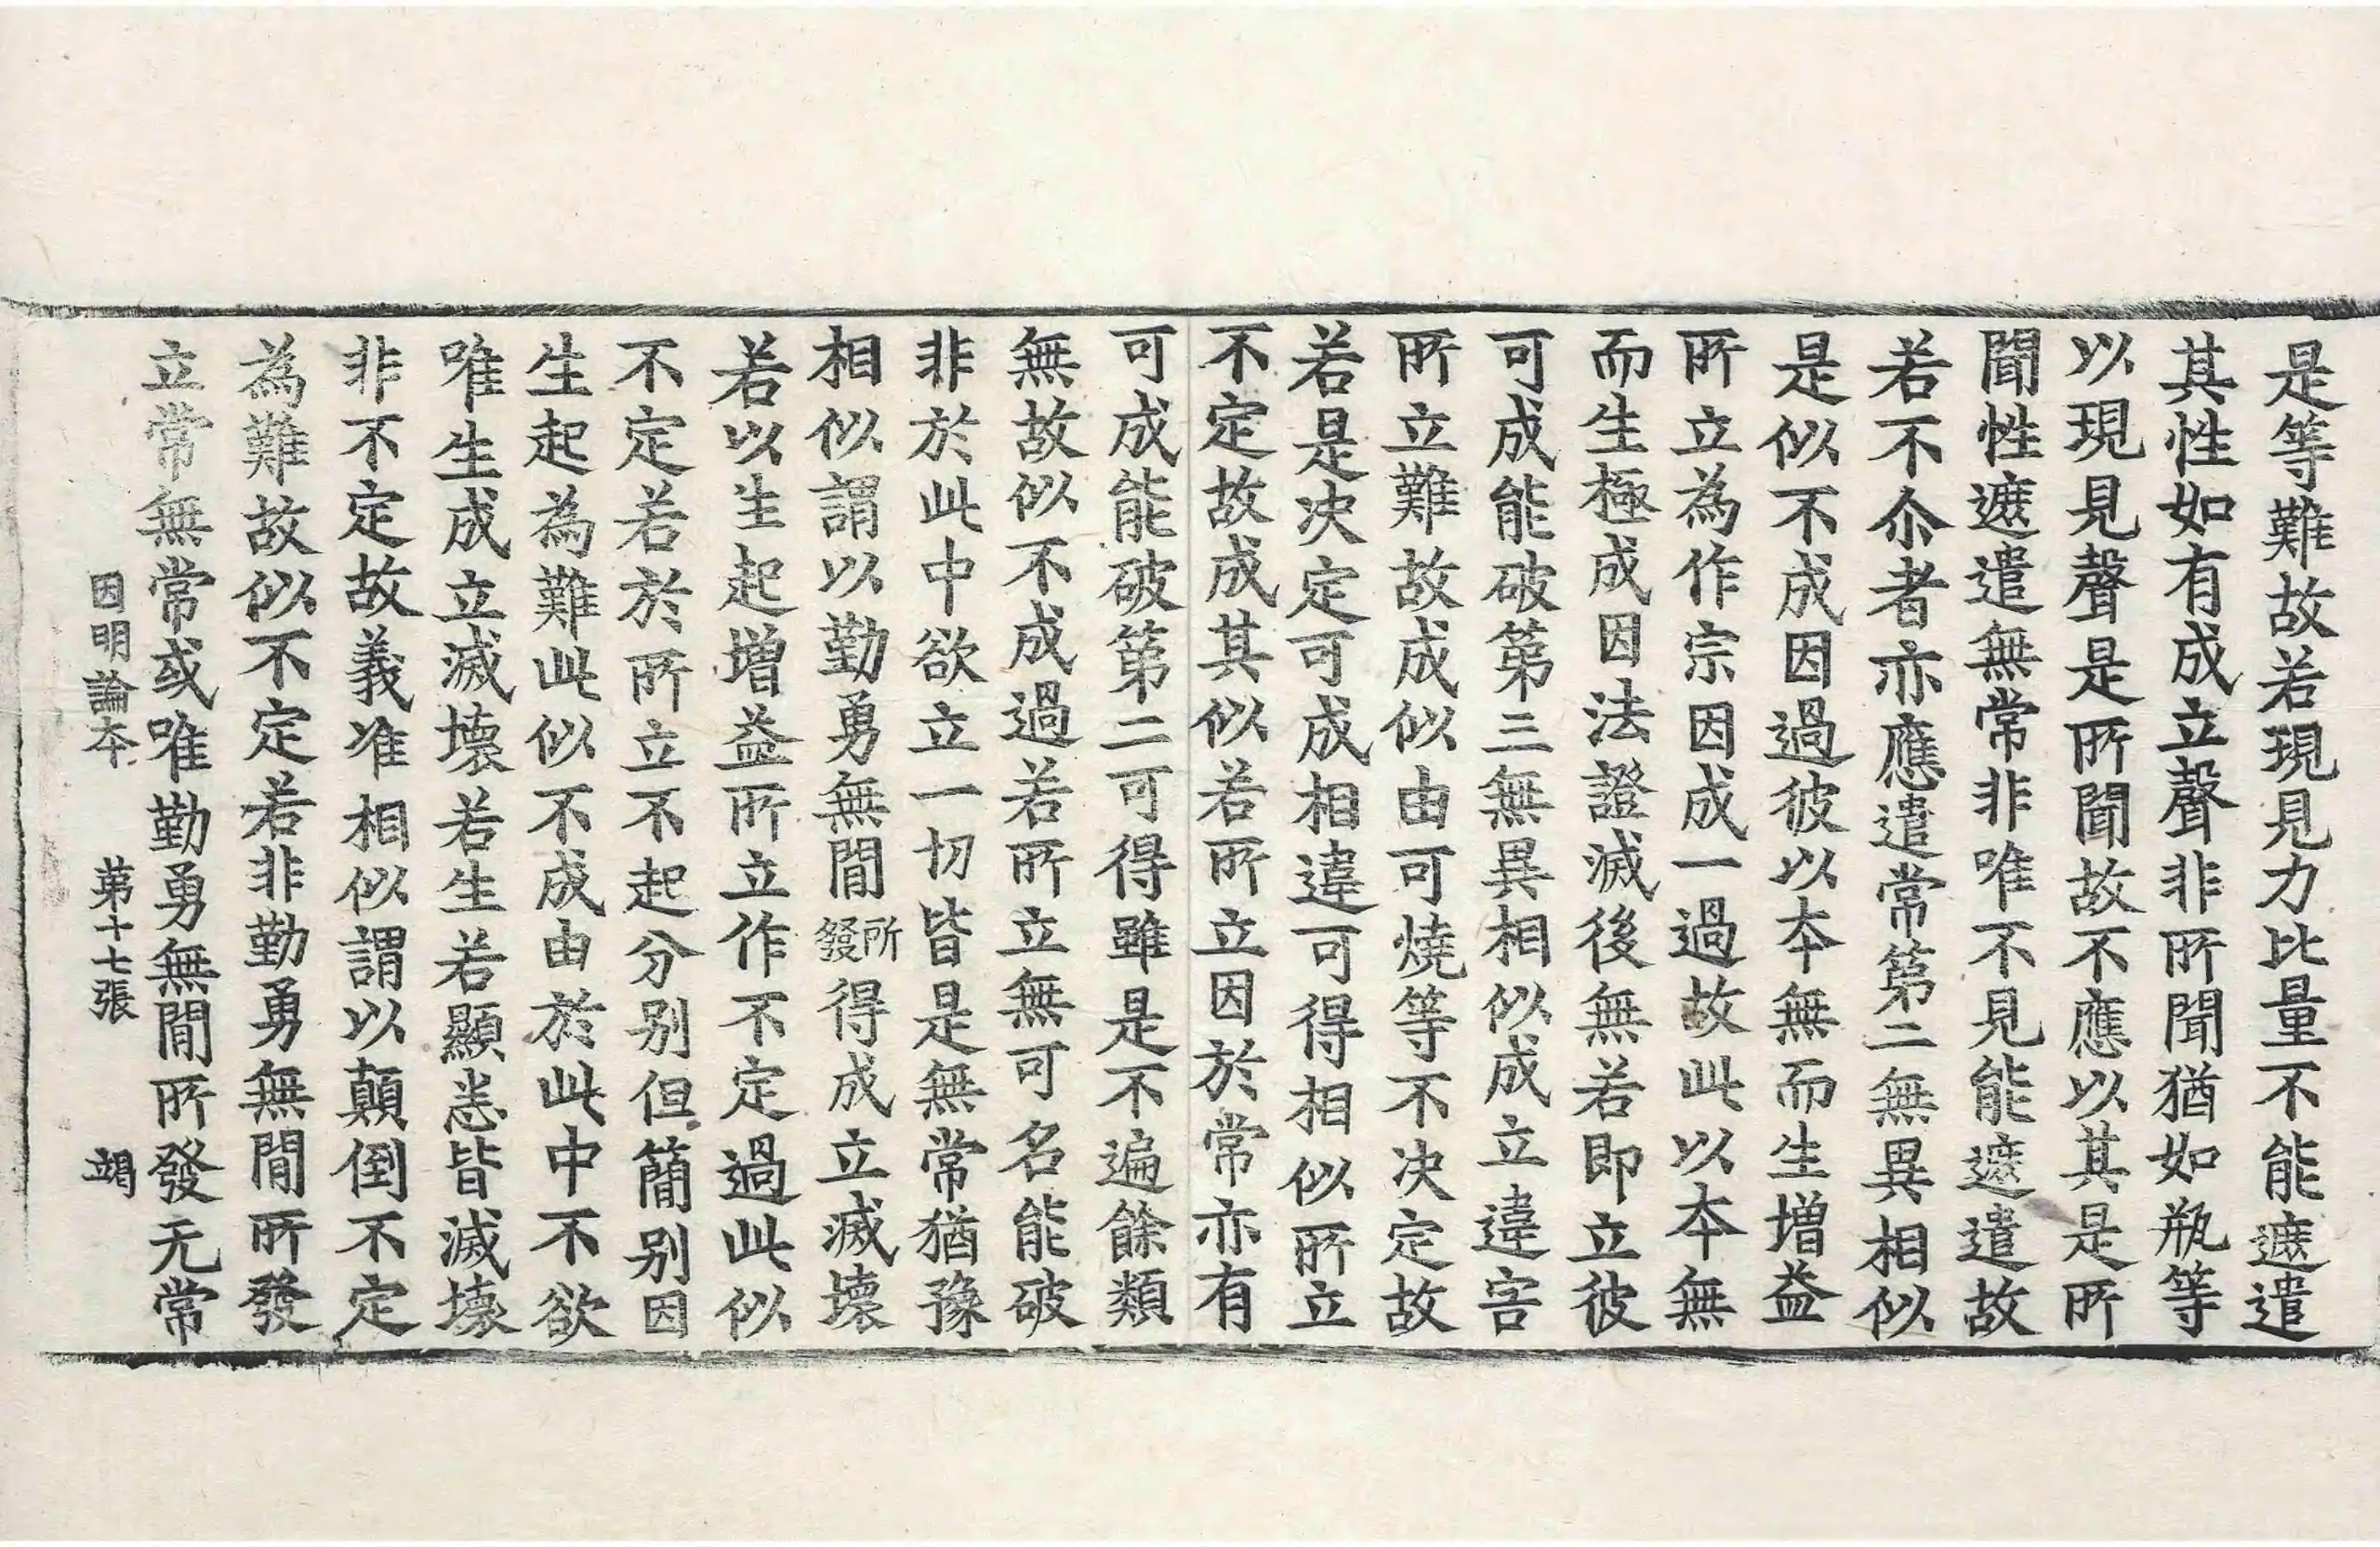 是等難故若現見力比量不能遮遣
其性如有成立聲非所聞猶如瓶等
以現見聲是所聞故不應以其是所
聞性遮遣無常非唯不見能遮遣故
若不尒者亦應遣常第二無異相似
是似不成因過彼以本無而生增益
所立為作宗因成一過故此以本無
而生極成因法證滅後無若即立彼
可成能破第三無異相似成立違害
所立難故成似由可燒等不决定故
若是决定可成相違可得相似所立
不定故成其似若所立因於常亦有
可成能破第二可得雖是不遍餘類
無故似不成過若所立無可名能破
非於此中欲立一切皆是無常猶豫
相似謂以勤勇無間所發得成立滅壞
若以生起增益所立作不定過此似
不定若於所立不起分別但簡別因
生起為難此似不成由於此中不欲
唯生成立滅壞若生若顯悉皆滅壞
非不定故義准相似謂以顛倒不定
為難故似不定若非勤勇無間所發
立常無常或唯勤勇無間所發无常
因明論本 第十七張 竭